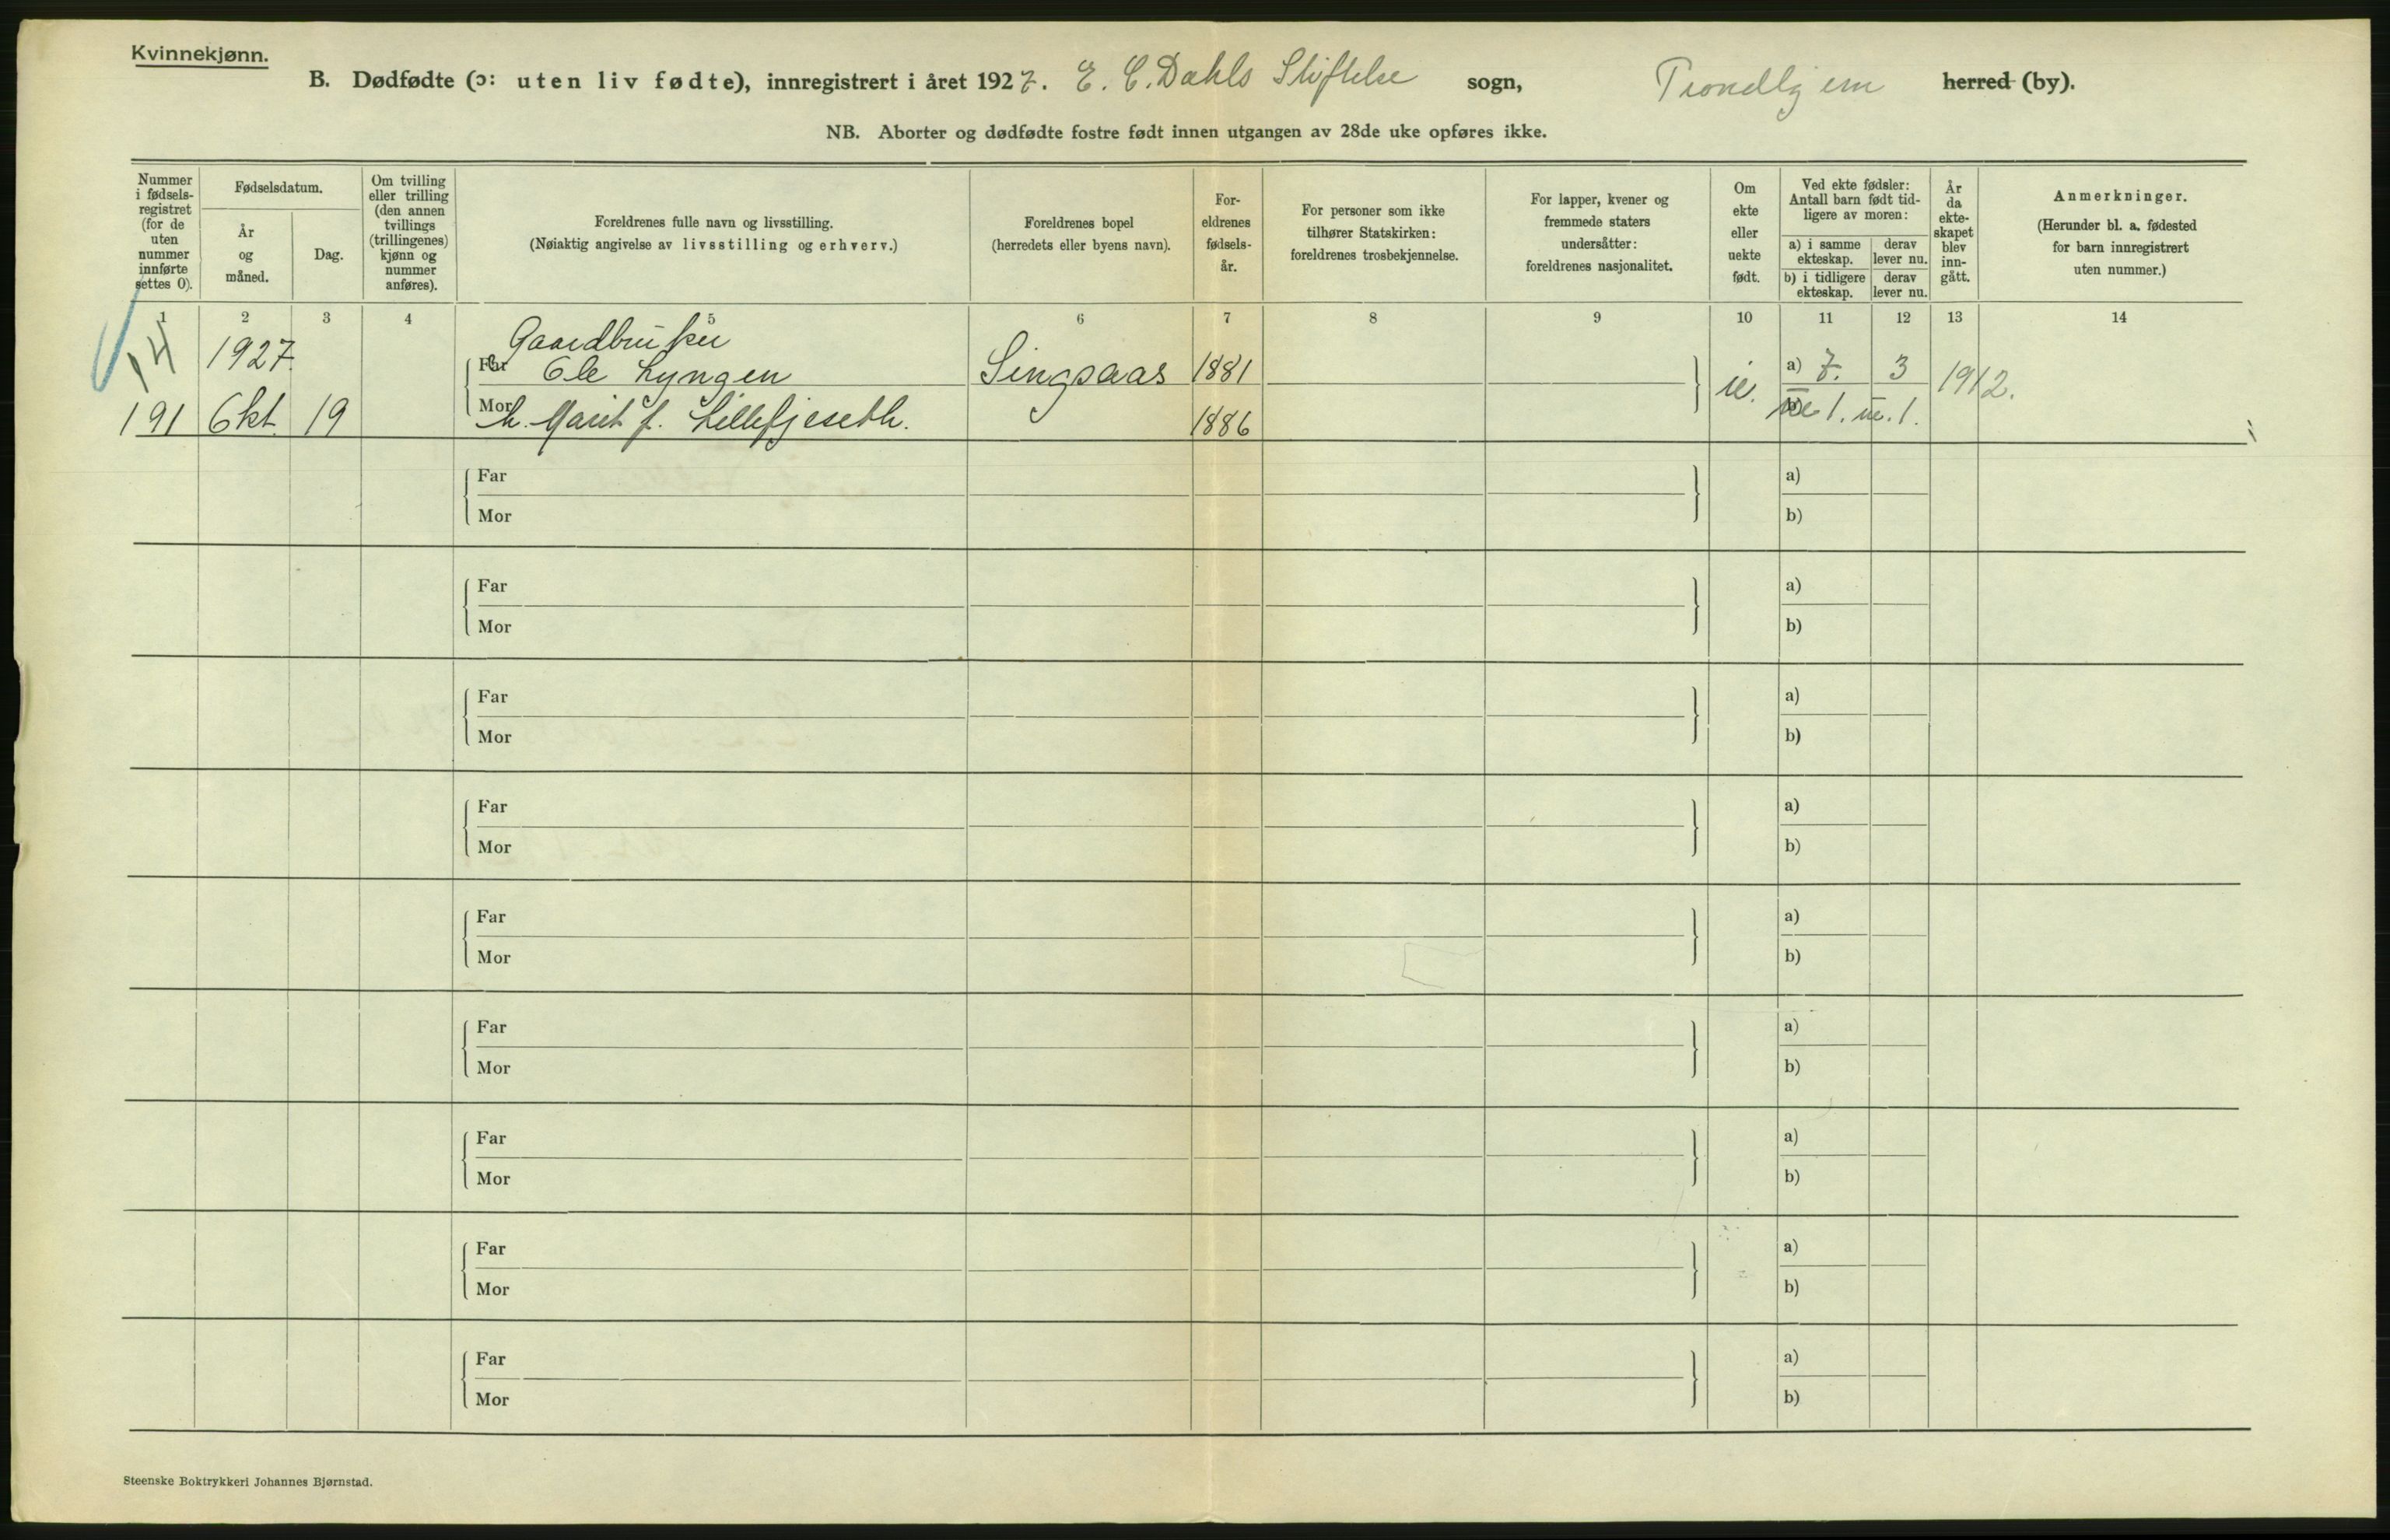 Kvinnekjønn.
B. Dødfødte (ɔ: uten liv fødte), innregistrert i året 1927. E. C. Dahls Stiftelse sogn, Trondhjem herred (by).
NB. Aborter og dødfødte fostre født innen utgangen av 28de uke opføres ikke.
Nummer i fødsels-registret (for de uten nummer innførte settes 0).
Fødselsdatum.
År og måned.
Dag.
Om tvilling eller trilling (den annen tvillings (trillingenes) kjønn og nummer anføres).
Foreldrenes fulle navn og livsstilling.
(Nøiaktig angivelse av livsstilling og erhverv.)
Foreldrenes bopel
(herredets eller byens navn).
For-eldrenes fødsels-år.
For personer som ikke tilhører Statskirken: foreldrenes trosbekjennelse.
For lapper, kvener og fremmede staters undersåtter: foreldrenes nasjonalitet.
Om ekte eller uekte født.
Ved ekte fødsler: Antall barn født tid-ligere av moren:
a) i samme ekteskap.
derav lever nu.
b) i tidligere ekteskap.
derav lever nu.
År da ekte-skapet blev inn-gått.
Anmerkninger.
(Herunder bl. a. fødested for barn innregistrert uten nummer.)
1 2 3 4 5 6 7 8 9 10 11 12 13 14
14 1927. Gaardbruker
Far Ole Lyngen Singsaas 1881 a) 7. 3 1912.
191 Okt. 19 Mor h. Marit f. Lillefjeseth. 1886 ue 1. ue. 1.
Far a)
Mor b)
Far a)
Mor b)
Far a)
Mor b)
Far a)
Mor b)
Far a)
Mor b)
Far a)
Mor b)
Far a)
Mor b)
Far a)
Mor b)
Far a)
Mor b)
Steenske Boktrykkeri Johannes Bjørnstad.